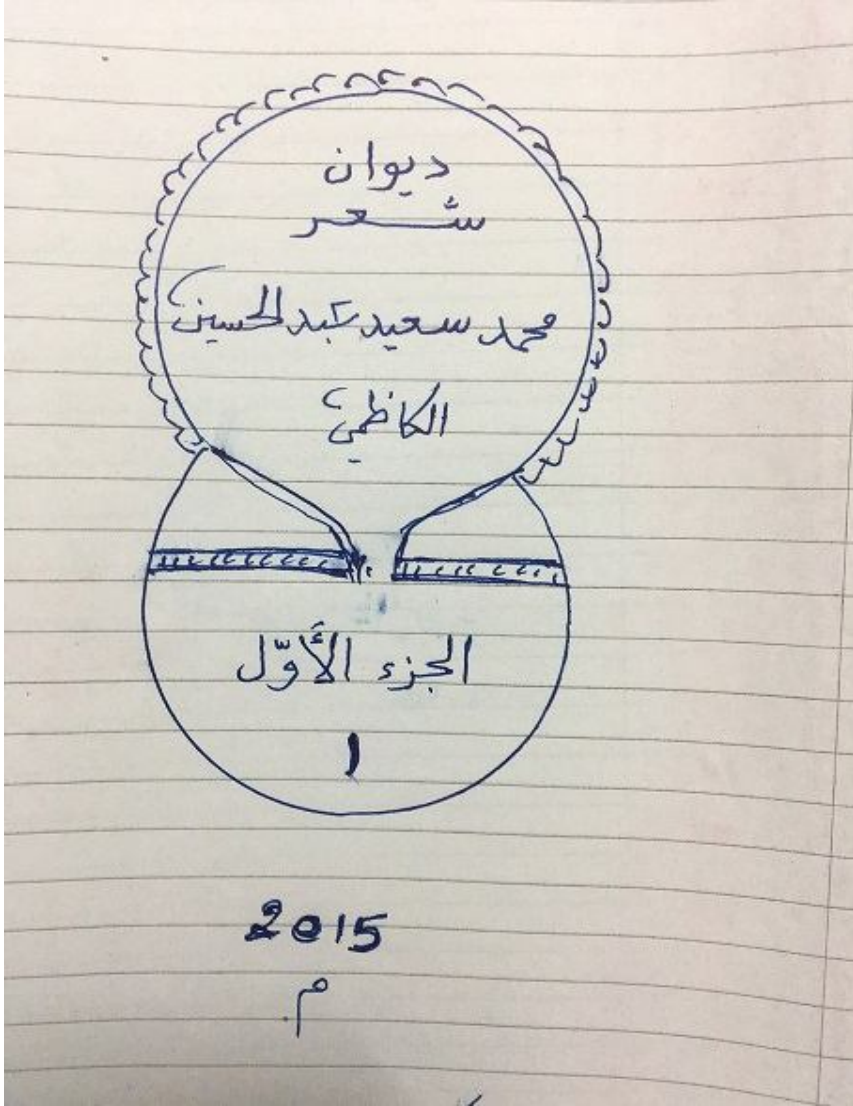 ديوان
شعر
محمد سعيد عبد الحسين
الكاظمي
الجزء الأَوّل
١
2015
م